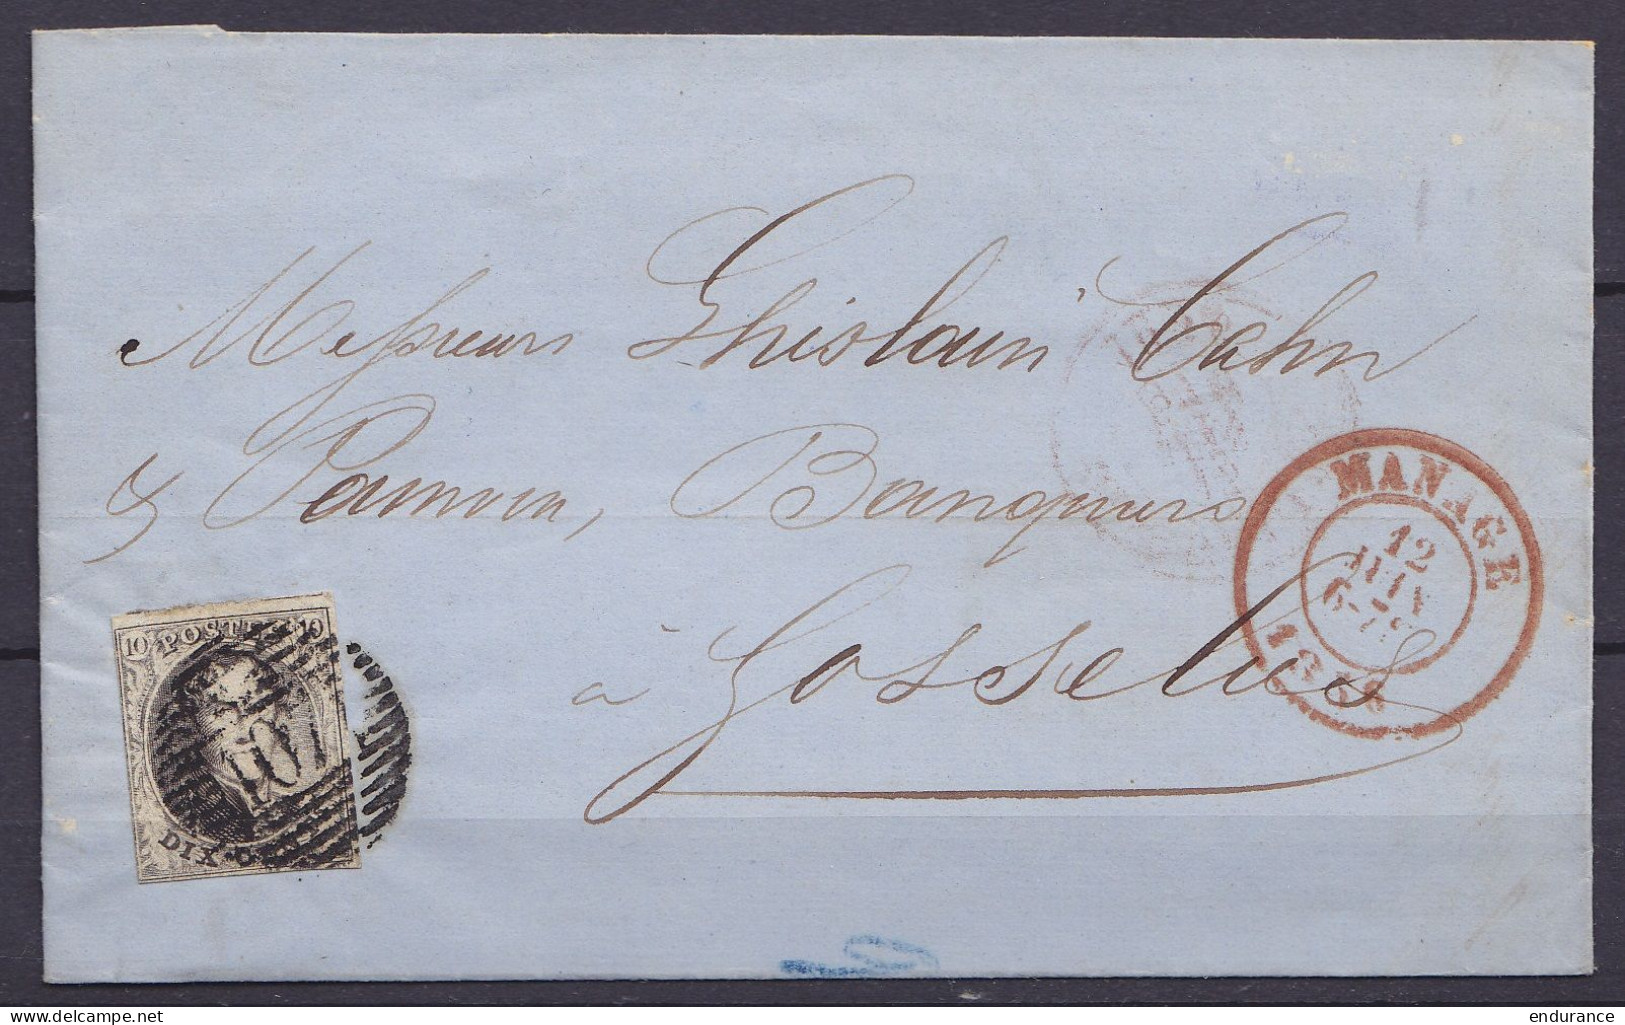 Messieurs Ghislain Cahn
& Pamvin, Banquiers
à Gosselies
10 POSTES 10
DIX CEN
MANAGE
12
JUIN
1858
© delcampe.net
endurance